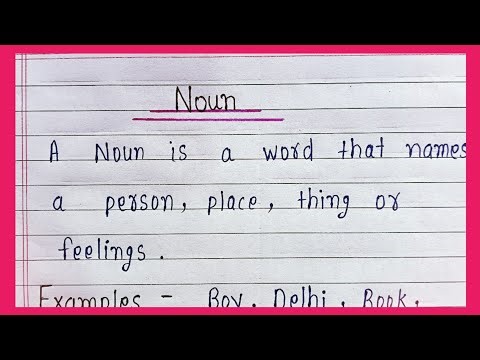 Noun
A Noun is a word that names
a person, place, thing or
feelings.
Examples - Boy, Delhi, Book,